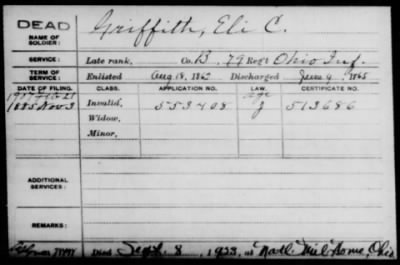 DEAD
NAME OF SOLDIER: Griffith, Eli C.
SERVICE: Late rank, Co. B, 79 Reg't Ohio Inf.
TERM OF SERVICE: Enlisted Aug 18, 1862 Discharged June 9, 1865
DATE OF FILING. CLASS. APPLICATION NO. LAW. CERTIFICATE NO.
1885 Nov 3 Invalid, 553408 513686
Widow,
Minor,
ADDITIONAL SERVICES:
REMARKS:
Died Sept. 8, 1933, at Natl. Mil. Home, Ohio